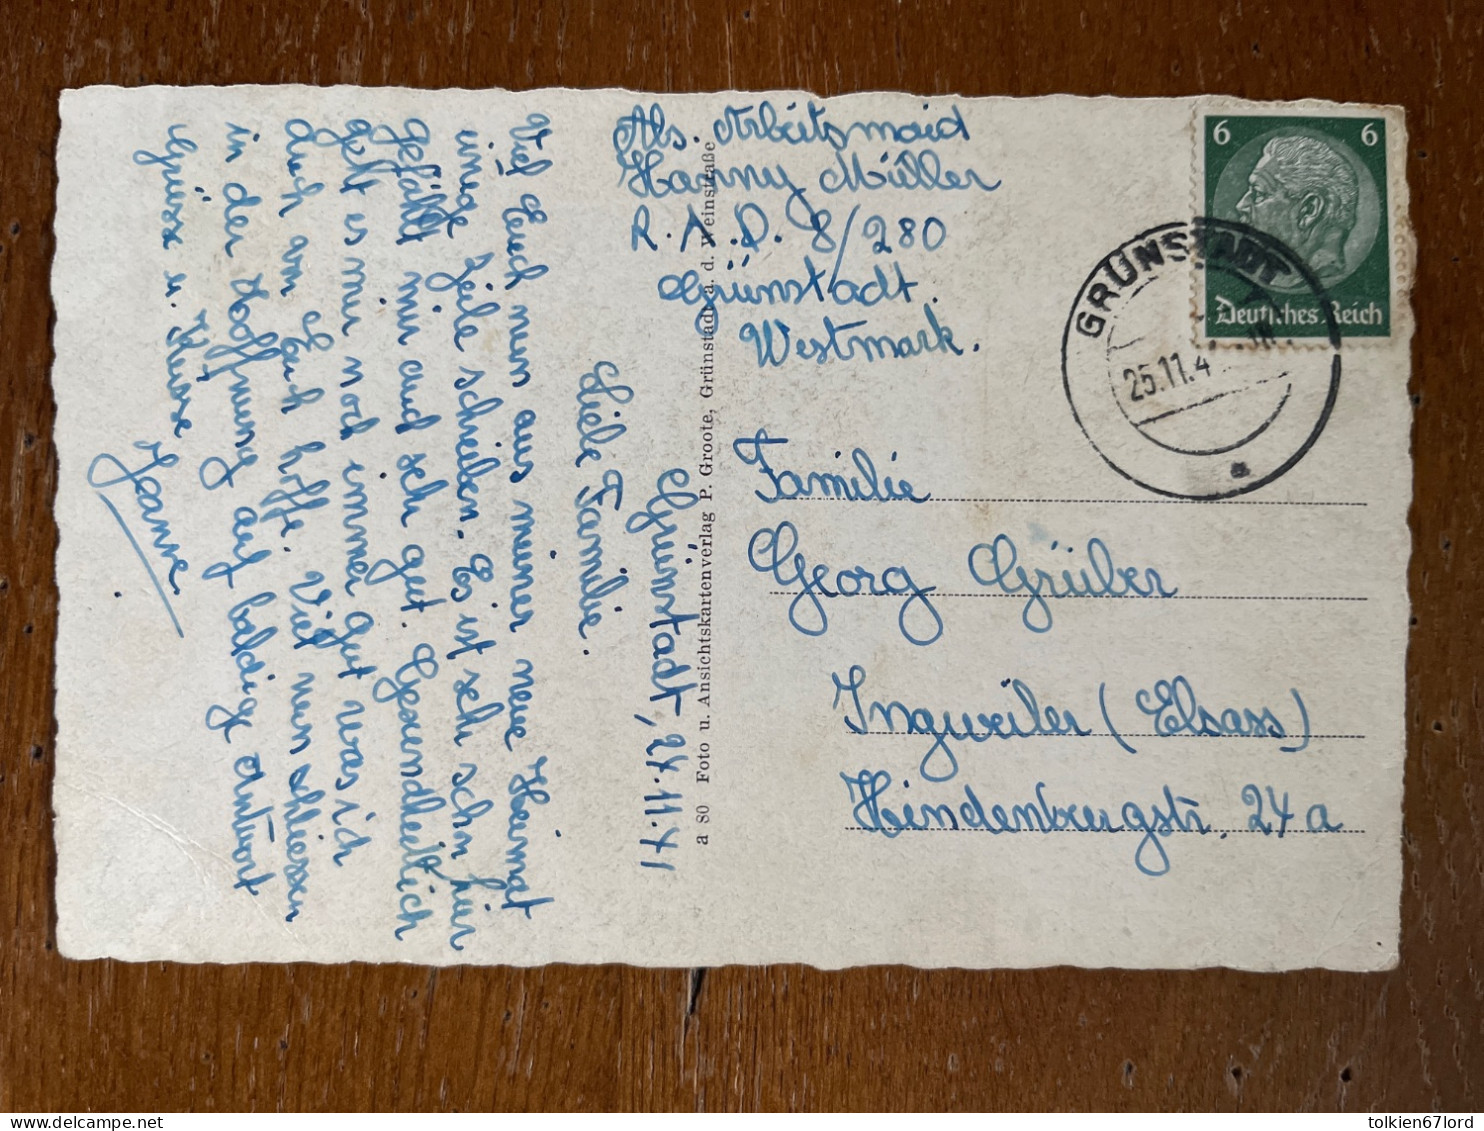 Als. Arbeitsmaid
Hanny Müller
R.A.D. 8/280
Grünstadt.
Westmark.
6 6
Deutsches Reich
GRÜNSTADT
25.11.4
Familie
Georg Grüber
Ingweiler (Elsass)
Hindenburgstr. 24a
a 80 Foto u. Ansichtskartenverlag P. Groote, Grünstadt a. d. Weinstraße
Grünstadt, 24.11.41
Liebe Familie.
Viel Euch nun aus meiner neue Heimat
einige Zeile schreiben. Es ist seh schn hier
gefällt mir auch seh gut. Gesundheitlich
geht es mir noch immer gut was ich
auch von Euch hoffe. Viel nun schliessen
in der Hoffnung auf baldige antwort
Grüsse u. Küsse
Hanne
tolkien67lord